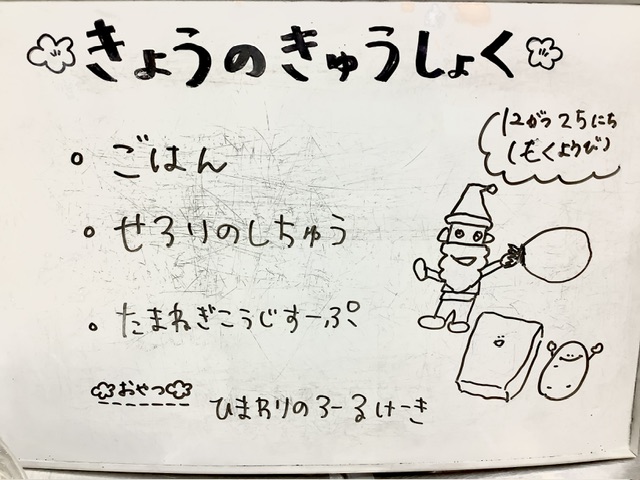 きょうのきゅうしょく
12がつ25にち
(もくようび)
ごはん
せろりのしちゅう
たまねぎこうじすーぷ
おやつ
ひまわりのろーるけーき